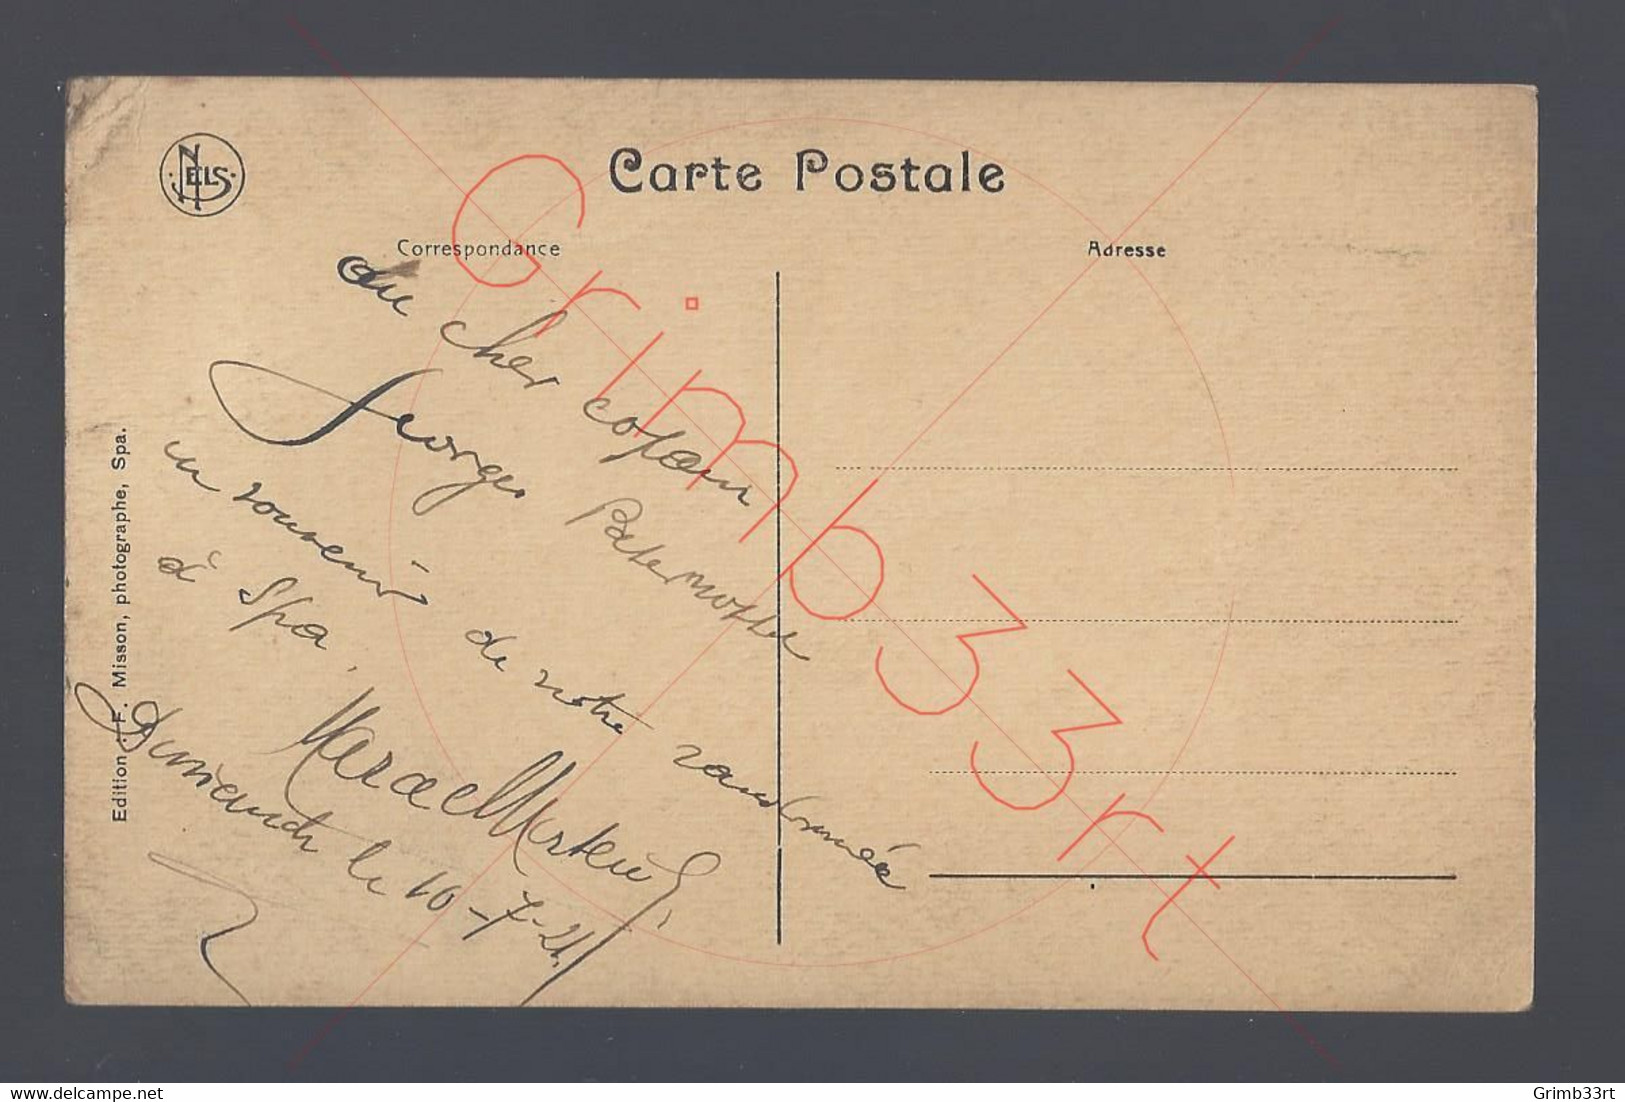 NELS
Carte Postale
Correspondance
Adresse
Au cher copain
Georges Paternoster
un souvenir de notre randonnée
à Spa.
Marcel
Dimanche le 10-7-21.
Edition : F. Misson, photographe, Spa.
Grimb33rt
www.delcampe.net
Grimb33rt